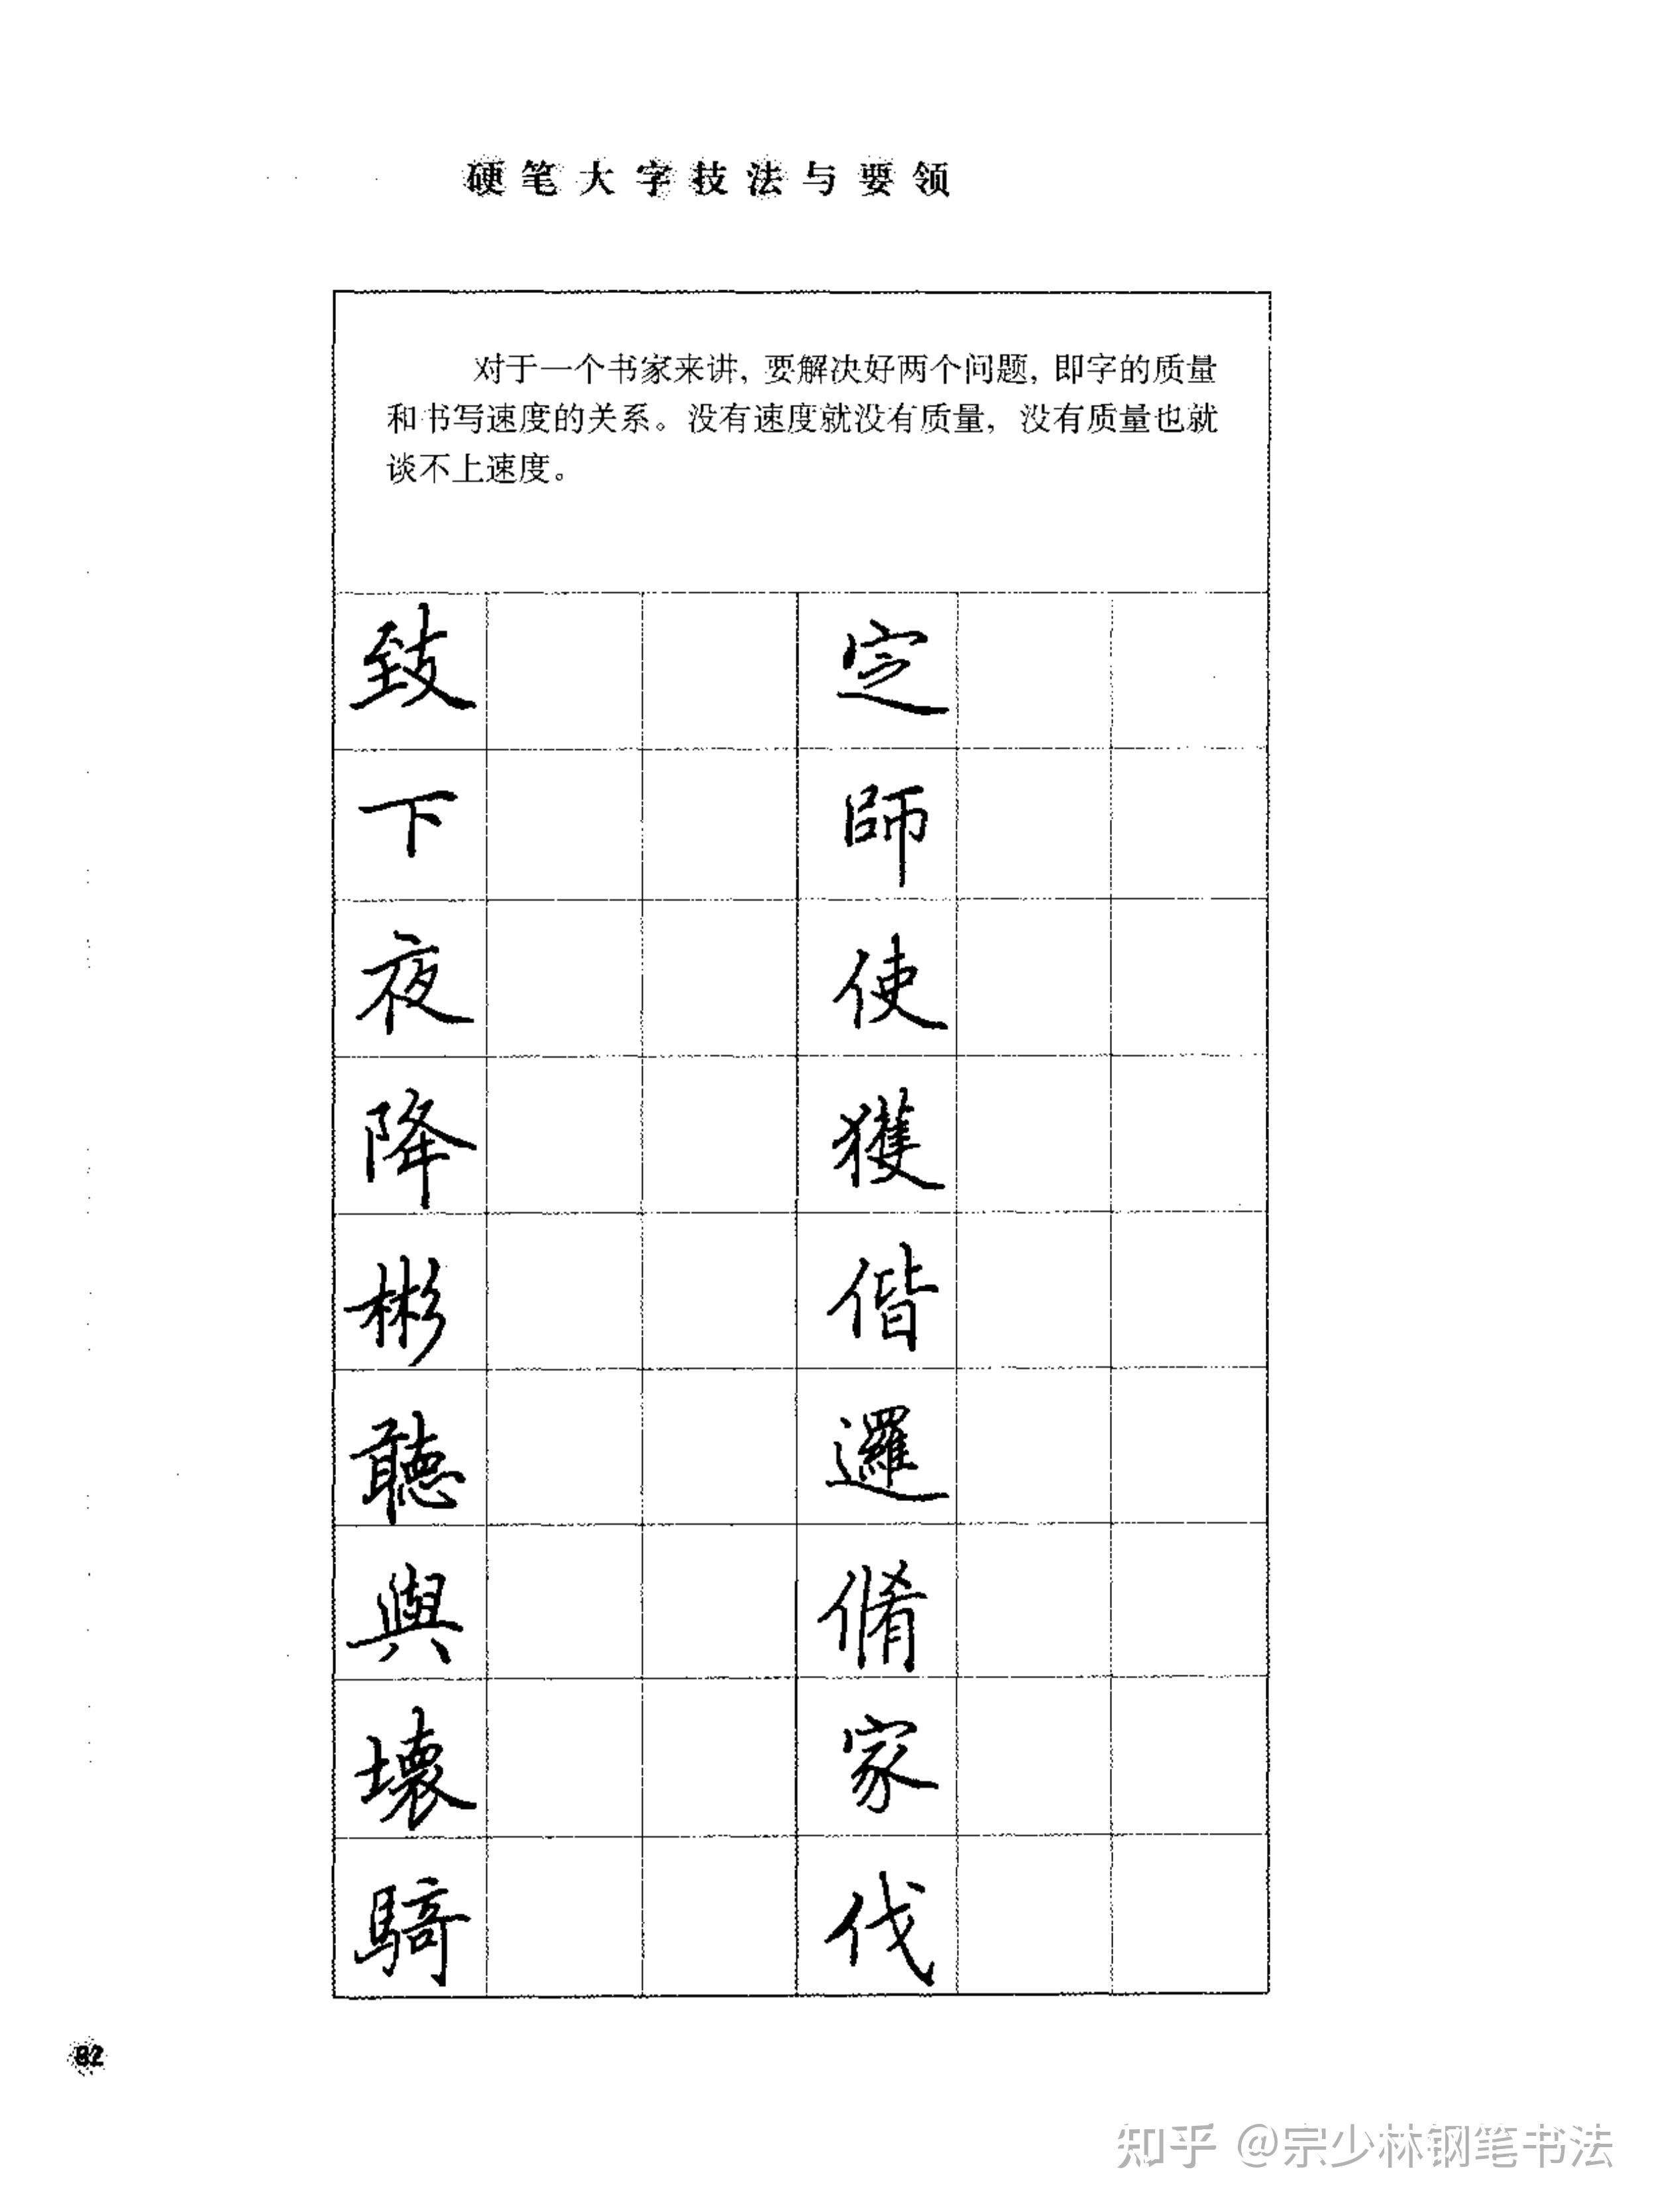 硬笔大字技法与要领
对于一个书家来讲,要解决好两个问题,即字的质量
和书写速度的关系。没有速度就没有质量,没有质量也就
谈不上速度。
致 定
下 師
夜 使
降 獲
彬 偕
聽 邏
與 脩
壞 家
騎 伐
82
知乎 @宗少林钢笔书法